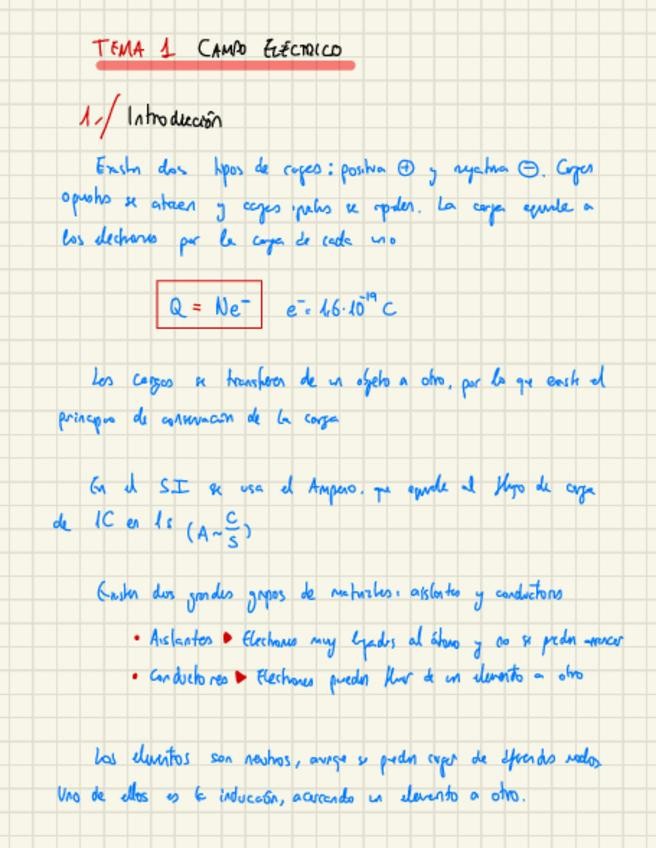 TEMA 1 CAMPO ELÉCTRICO
1./ Introducción
Existen dos tipos de cargas: positiva ⊕ y negativa ⊖. Cargas
opuestas se atraen y cargas iguales se repelen. La carga equivale a
los electrones por la carga de cada uno
Q = Ne⁻ e⁻= 1,6·10⁻¹⁹ C
Las cargas se transfieren de un objeto a otro, por lo que existe el
principio de conservación de la carga
En el SI se usa el Amperio, que equivale al flujo de carga
de 1C en 1s (A ~ C/s)
Existen dos grandes grupos de materiales: aislantes y conductores
• Aislantes ▶ Electrones muy ligados al átomo y no se pueden arrancar
• Conductores ▶ Electrones pueden fluir de un elemento a otro
Los elementos son neutros, aunque se pueden cargar de diferentes modos
Uno de ellos es la inducción, acercando un elemento a otro.